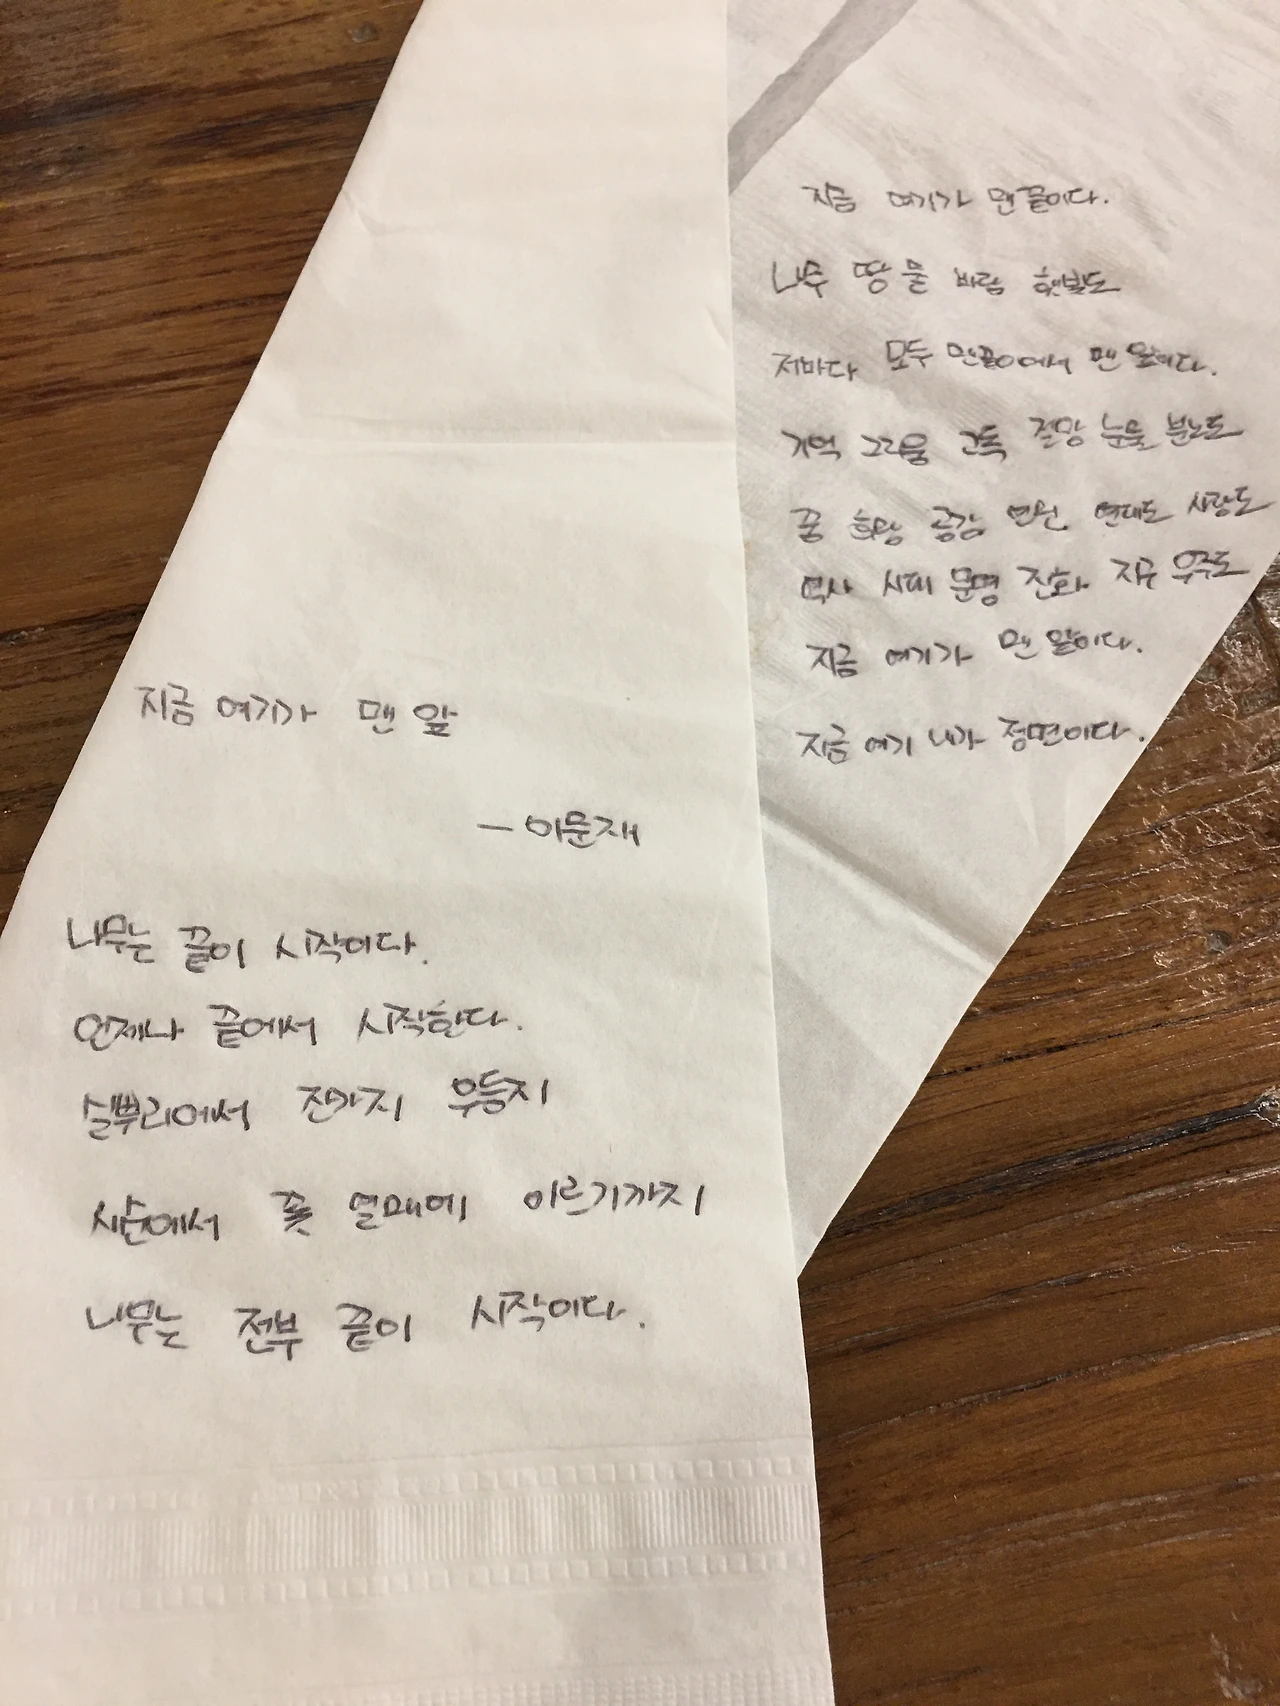 지금 여기가 맨 앞
- 이문재
나무는 끝이 시작이다.
언제나 끝에서 시작한다.
실뿌리에서 잔가지 우듬지
새순에서 꽃 열매에 이르기까지
나무는 전부 끝이 시작이다.
지금 여기가 맨 끝이다.
나무 땅 물 바람 햇빛도
저마다 모두 맨끝이어서 맨 앞이다.
기억 그리움 고독 절망 눈물 분노도
꿈 희망 공감 연민 연대도 사랑도
역사 시대 문명 진화 지구 우주도
지금 여기가 맨 앞이다.
지금 여기 내가 정면이다.